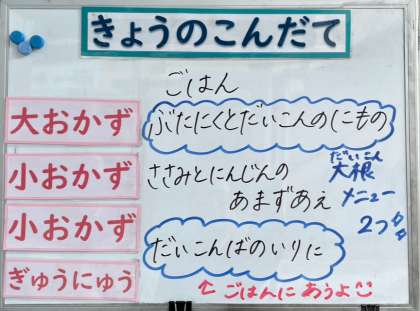 きょうのこんだて
ごはん
大おかず
ぶたにくとだいこんのにもの
小おかず
ささみとにんじんの
あまずあえ
だいこん
大根
メニュー
2つ
小おかず
だいこんばのいりに
ぎゅうにゅう
↑ ごはんにあうよ